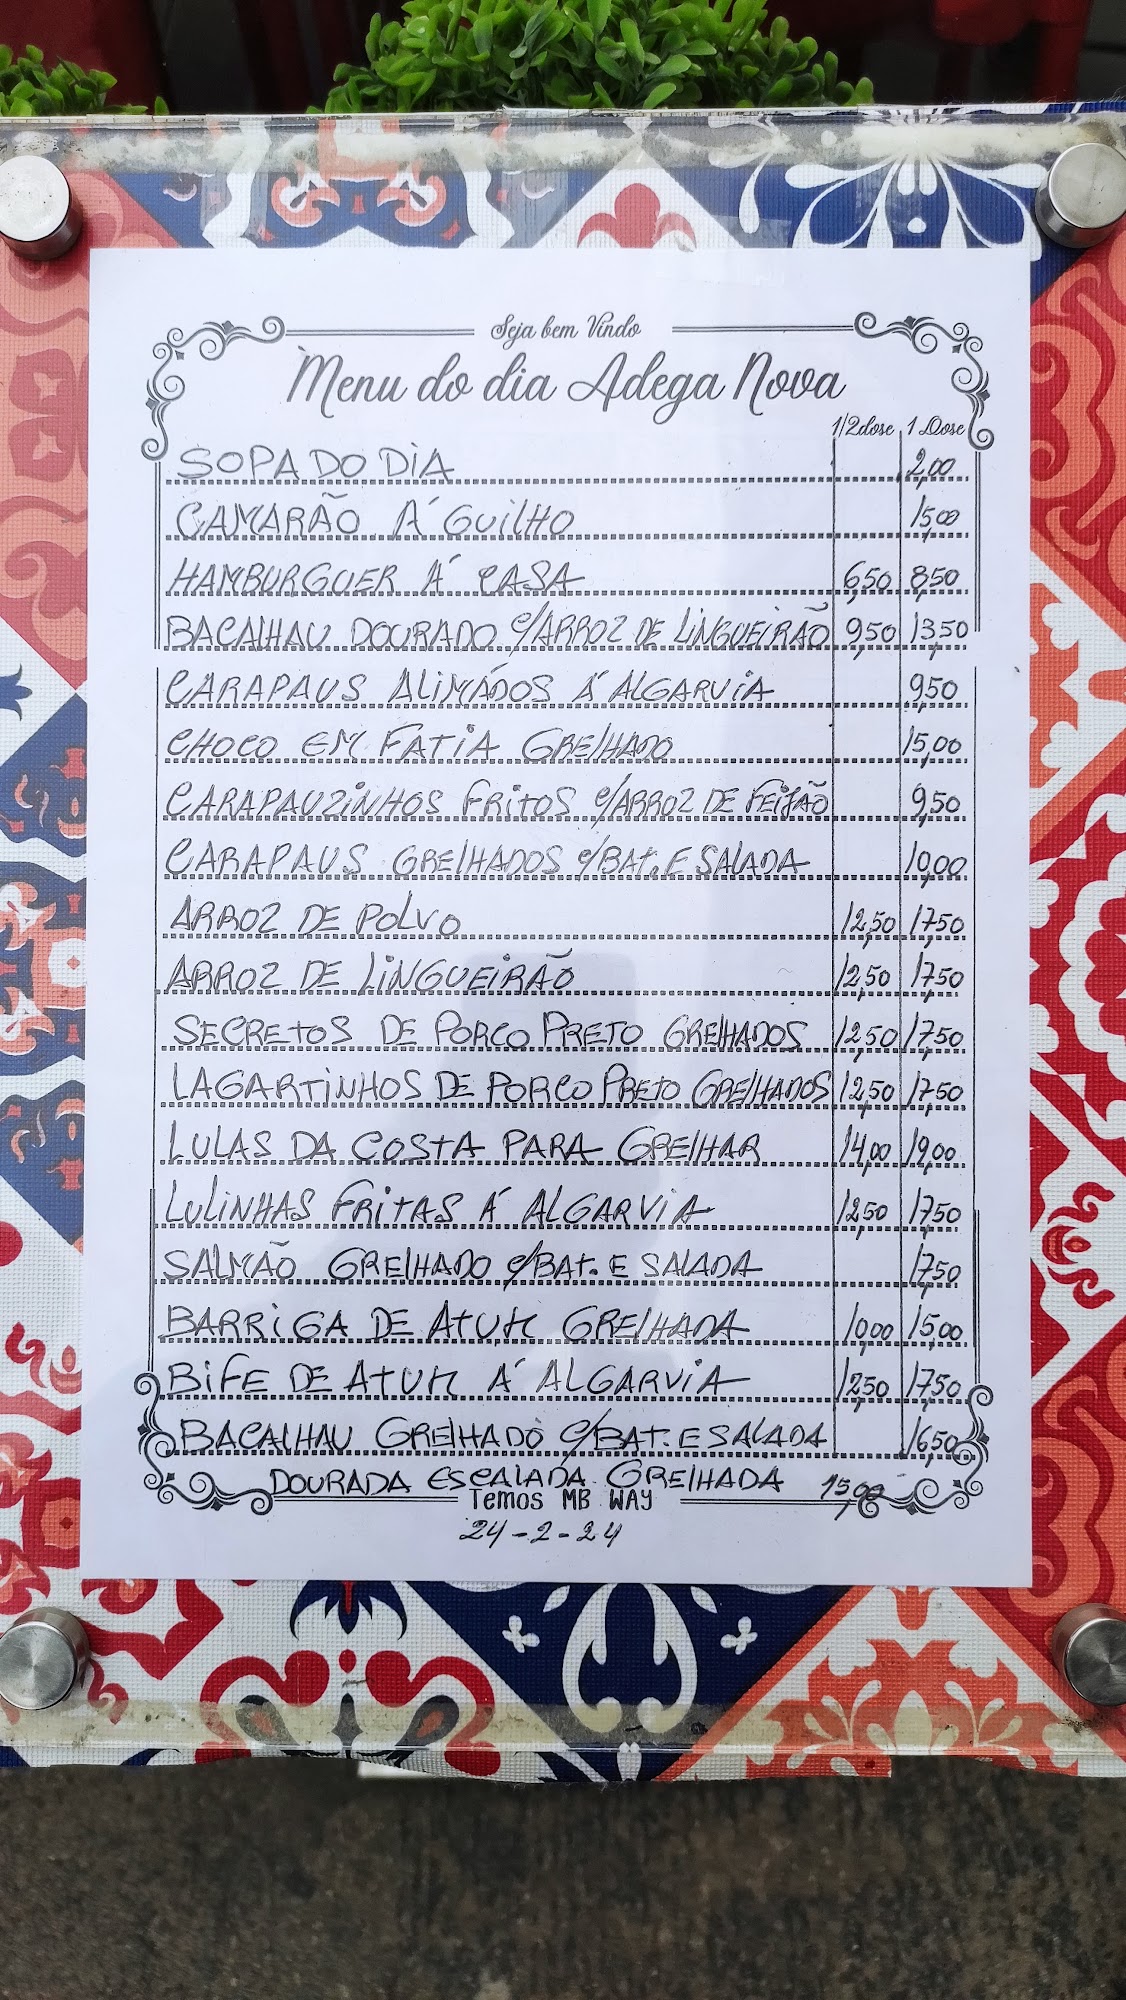 Seja bem Vindo
Menu do dia Adega Nova
1/2dose 1 Dose
SOPA DO DIA 2,00
CAMARÃO Á GUILHO 15,00
HAMBURGUER Á CASA 6,50 8,50
BACALHAU DOURADO C/ARROZ DE LINGUEIRÃO 9,50 13,50
CARAPAUS ALIMADOS Á ALGARVIA 9,50
CHOCO EM FATIA GRELHADO 15,00
CARAPAUZINHOS FRITOS C/ARROZ DE FEIJÃO 9,50
CARAPAUS GRELHADOS C/BAT. E SALADA 10,00
ARROZ DE POLVO 12,50 17,50
ARROZ DE LINGUEIRÃO 12,50 17,50
SECRETOS DE PORCO PRETO GRELHADOS 12,50 17,50
LAGARTINHOS DE PORCO PRETO GRELHADOS 12,50 17,50
LULAS DA COSTA PARA GRELHAR 14,00 19,00
LULINHAS FRITAS Á ALGARVIA 12,50 17,50
SALMÃO GRELHADO C/BAT. E SALADA 17,50
BARRIGA DE ATUM GRELHADA 10,00 15,00
BIFE DE ATUM Á ALGARVIA 12,50 17,50
BACALHAU GRELHADO C/BAT. E SALADA 16,50
DOURADA ESCALADA GRELHADA 15,00
Temos MB WAY
24-2-24